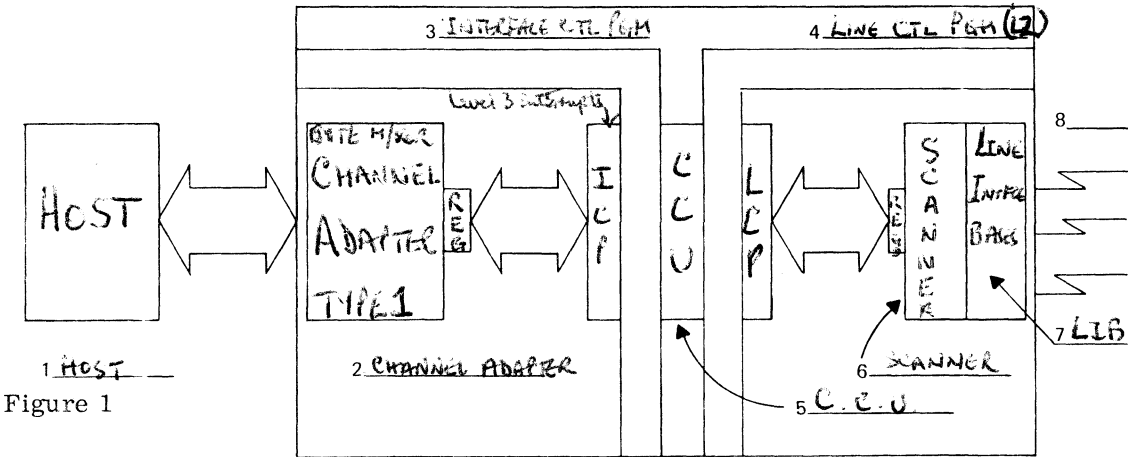 3 INTERFACE CTL PGM
4 LINE CTL PGM (L2)
Level 3 interrupts
HOST
BYTE M/XER
CHANNEL
ADAPTER
TYPE 1
REG
ICP
CCU
LCP
REG
SCANNER
LINE
INTFCE
BASES
8
7 LIB
1 HOST
2 CHANNEL ADAPTER
6 SCANNER
5 C.C.U.
Figure 1